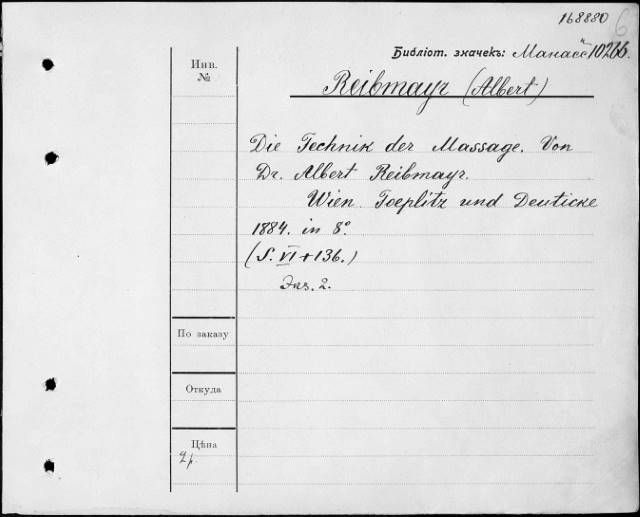 168880 6
Библіот. значекъ: Манасс 10266.
Инв.
№
Reibmayr (Albert)
Die Technik der Massage. Von
Dr. Albert Reibmayr.
Wien. Toeplitz und Deuticke
1884. in 8°
(S. VI + 136.)
Экз. 2.
По заказу
Откуда
Цѣна
2 р.